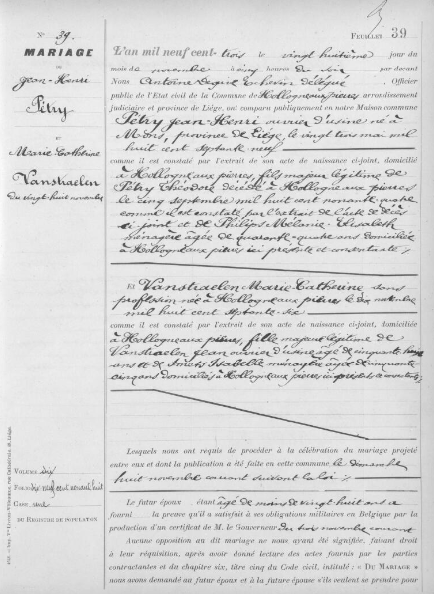 FEUILLET 39
N° 39.
MARIAGE
DE
Jean-Henri
Pétry
ET
Marie Catherine
Vanstraelen
du vingt-huit novembre
L'an mil neuf cent-trois le vingt huitième jour du
mois de novembre à cinq heures du soir par devant
Nous Antoine Echevin délégué Officier
public de l'Etat civil de la Commune de Hollogne aux pierres arrondissement
Judiciaire et province de Liége, ont comparu publiquement en notre Maison commune
Pétry Jean-Henri ouvrier d'usine né à
Mons, province de Liége, le vingt trois mai mil
huit cent septante neuf
comme il est constaté par l'extrait de son acte de naissance ci-joint, domicilié
à Hollogne aux pierres, fils majeur légitime de
Pétry Théodore décédé à Hollogne aux pierres
le cinq septembre mil huit cent nonante quatre
comme il est constaté par l'extrait de l'acte de décès
ci joint et de Philips Mélanie Elisabeth
ménagère âgée de quarante-quatre ans domiciliée
à Hollogne aux pierres ici présente et consentante ;
Et Vanstraelen Marie Catherine sans
profession née à Hollogne aux pierres le dix novembre
mil huit cent septante-six
comme il est constaté par l'extrait de son acte de naissance ci-joint, domiciliée
à Hollogne aux pierres, fille majeure légitime de
Vanstraelen Jean ouvrier d'usine âgé de cinquante
ans et de Smets Isabelle ménagère âgée de cinquante
cinq ans domiciliés à Hollogne aux pierres ici présents & consentants ;
Lesquels nous ont requis de procéder à la célébration du mariage projeté
entre eux et dont la publication a été faite en cette commune le dimanche
huit novembre courant suivant la loi ;
Le futur époux étant âgé de moins de vingt huit ans a
fourni la preuve qu'il a satisfait à ses obligations militaires en Belgique par la
production d'un certificat de M. le Gouverneur du trois novembre courant
Aucune opposition au dit mariage ne nous ayant été signifiée, faisant droit
à leur réquisition, après avoir donné lecture des actes fournis par les parties
contractantes et du chapitre six, titre cinq du Code civil, intitulé : « DU MARIAGE »
nous avons demandé au futur époux et à la future épouse s'ils veulent se prendre pour
VOLUME dix
FOLIO
CASE une
DU REGISTRE DE POPULATION